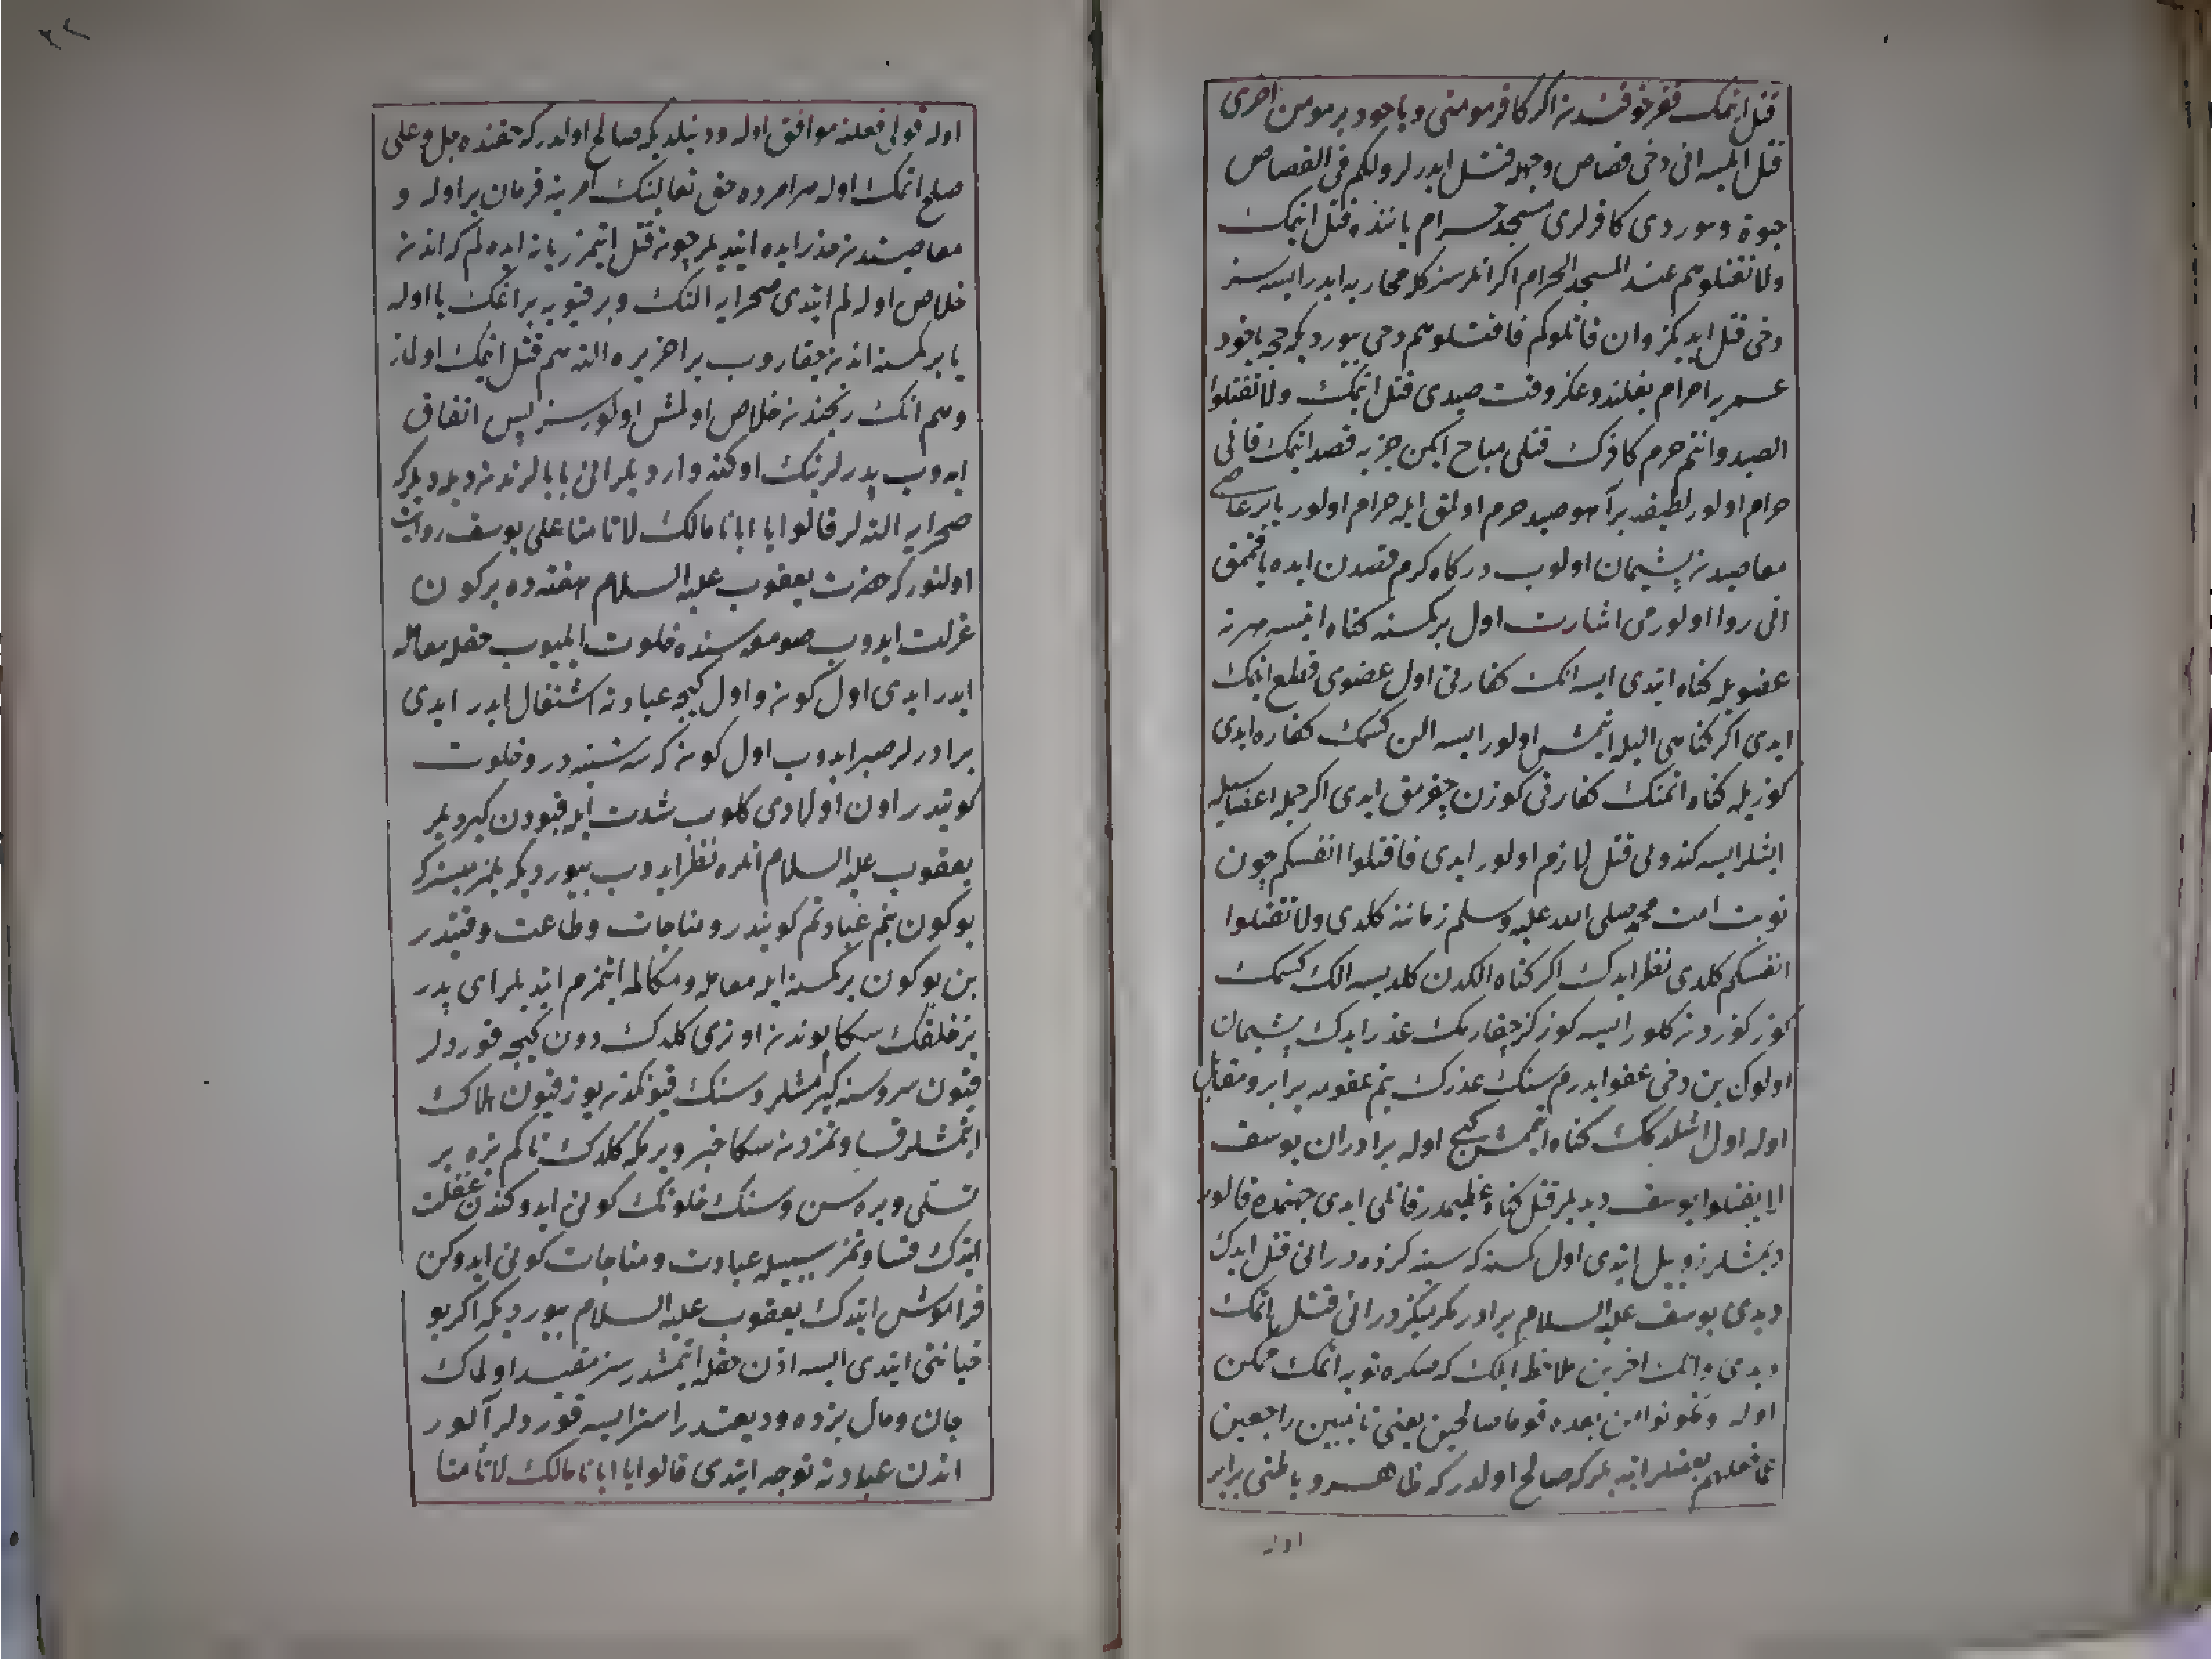 قتل ایتمک فقر خوفندن اکر کافر مومنی ویاخود بر مومن اخری
قتل ایلیسه انی دخی قصاص وجهله قتل ایدرلر ولکم فی القصاص
حیوة و موردی کافرلری مسجد حرام یاننده قتل ایتمک
ولا تقتلوهم عند المسجد الحرام اکر انلر سزکله محاربه ایدرلیسه سز
دخی قتل ایدیکز وان قاتلوکم فاقتلوهم دخی بیوردیکه حجه یاخود
عمره احرام بغلندوغکز وقت صیدی قتل ایتمک ولا تقتلوا
الصید وانتم حرم کافرک قتلی مباح ایکن جزیه قصد ایتمک قانی
حرام اولور لطیفه بر آهو صید حرم اولمق ایله حرام اولور یا بر عاصی
معاصیدن پشیمان اولوب درکاه کرم قصدن ایده یاقمق
انی روا اولورمی اشارت اول بر کمسنه کناه ایتسه هر نه
عضویله کناه ایتدی ایسه انک کفارتی اول عضوی قطع ایتمک
ایدی اکر کناهی الیله ایتمش اولور ایسه الن کسمک کفاره ایدی
کوزیله کناه اتمنک کفارتی کوزن چقرمق ایدی اکر جمله اعضاسیله
ایشلرایسه کندولی قتل لازم اولور ایدی فاقتلوا انفسکم چون
نوبت امت محمد صلی الله علیه وسلم زماننه کلدی ولا تقتلوا
انفسکم کلدی نظر ایدک اکر کناه الکدن کلدیسه الک کسمک
کوزکوزدن کلور ایسه کوزکز چقارمک عذر ایدک پشیمان
اولوک بن دخی عفو ایدرم سنک عذرک بنم عفومه برابر و مقابل
اوله اول اشلدیکک کناه ایتممش کبی اوله برادران یوسف
لا یقتلوا یوسف دیدیلر قتل کناه عظیمدر قاتلی ایدی جهنمده قالور
دیمشلر زوبیل ایتدی اول کمسنه که سینه کزده در انی قتل ایدک
دیدی یوسف علیه السلام برادر مکرمیکزدر انی قتل ایتمک
دیدی وانک اخرین ملاحظه ایلک که صکره توبه اتمک ممکن
اوله وتکونوا من بعده قوما صالحین یعنی تائبین راجعین
عن فعلهم بعضلر ایتدیلر که صالح اولدر که ظاهر و باطنی برابر
اوله
٢٢
اوله قولی فعلنه موافق اوله ودنیلدیکه صالح اولدر که حقنده جل وعلی
صلح اتمک اوله هر امرده حق تعالینک امرینه فرمان بر اوله و
معاصیسندن حذر ایده ایتدیلر چونه قتل ایتمز یا نه ایده لم که اندن
خلاص اوله لم ایتدی صحرایه النک وبر قیویه براغک یا اوله
یا بر کمسنه اندن چقاروب بر اخر یره الته هم قتل ایتمک اولماز
وهم انک رنجندن خلاص اولمش اولورسز پس اتفاق
ایدوب پدرلرینک اوکنه واردیلر انی بابالرندن دیلدیلر که
صحرایه الته لر قالوا یا ابانا مالک لا تامنا علی یوسف روایت
اولنور که حضرت یعقوب علیه السلام هفته ده بر کون
عزلت ایدوب صومعه سنده خلوت ایلیوب حقله معامله
ایدر ایدی اول کون و اول کیجه عبادته اشتغال ایدر ایدی
برادرلر صبر ایدوب اول کون که سه شنبه در و خلوت
کونیدر اون اولادی کلوب شدت ایله قپودن کیردیلر
یعقوب علیه السلام انلره نظر ایدوب بیوردیکه بلمزمیسز که
بو کون بنم عبادتم کونیدر و مناجات وطاعت وقتیدر
بن بو کون بر کمسنه ایله معامله و مکالمه ایتمزم ایتدیلر ای پدر
بز خلقک سکا بوندن اوزی کلدک دون کیجه قوردلر
قیون سروسنه کیرمشلر و سنک قیونکدن یوز قیون هلاک
ایتمشلر قساوتمزدن سکا خبر ویرمکه کلدک تا کم بزه بر
تسلی ویره سن وسنک خلوتک کونی ایدوکندن غفلت
ایتدک قساوتمز سببیله عبادت و مناجات کونی ایدوکن
فراموش ایتدک یعقوب علیه السلام بیوردیکه اکر بو
خیانتی ایتدی ایسه اذن حقله ایتمشدر سز مقید اولماک
جان ومال بزده ودیعتدر استرایسه قوردلر آلور
اندن عبادته توجه ایتدی قالوا یا ابانا مالک لا تامنا